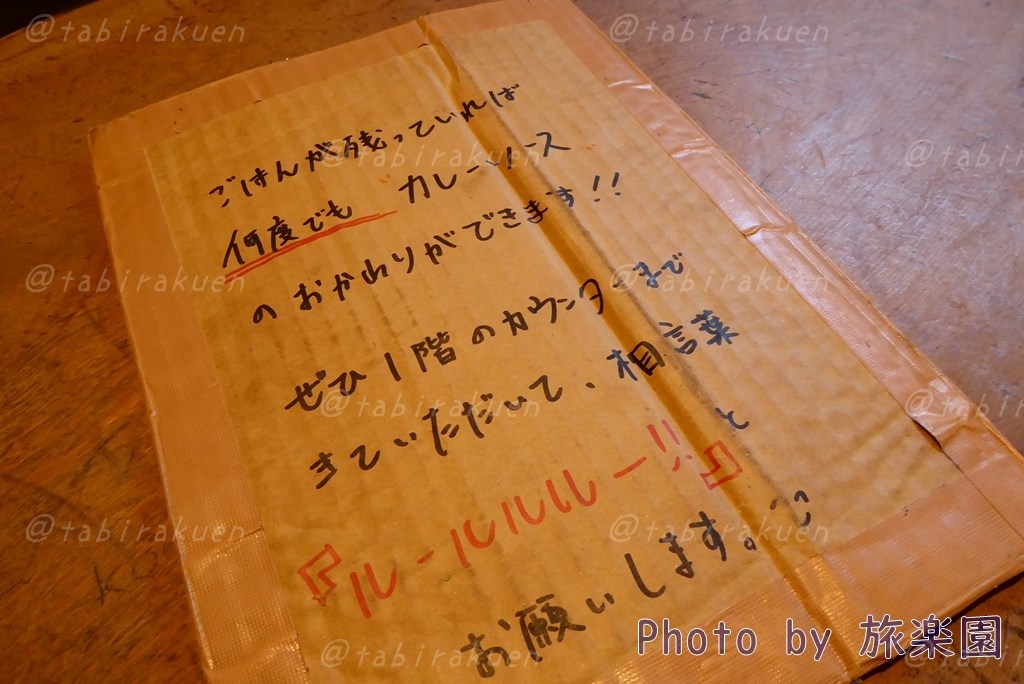 ごはんが残っていれば
何度でも "カレーソース"
のおかわりができます!!
ぜひ1階のカウンターまで
きていただいて、相言葉
と
『ルールルルー!!』
お願いします。
Photo by 旅楽園
@tabirakuen
@tabirakuen
@tabirakuen
@tabirakuen
@tabirakuen
@tabirakuen
@tabirakuen
@tabirakuen
@tabirakuen
@tabirakuen
@tabirakuen
@tabirakuen
@tabirakuen
@tabirakuen